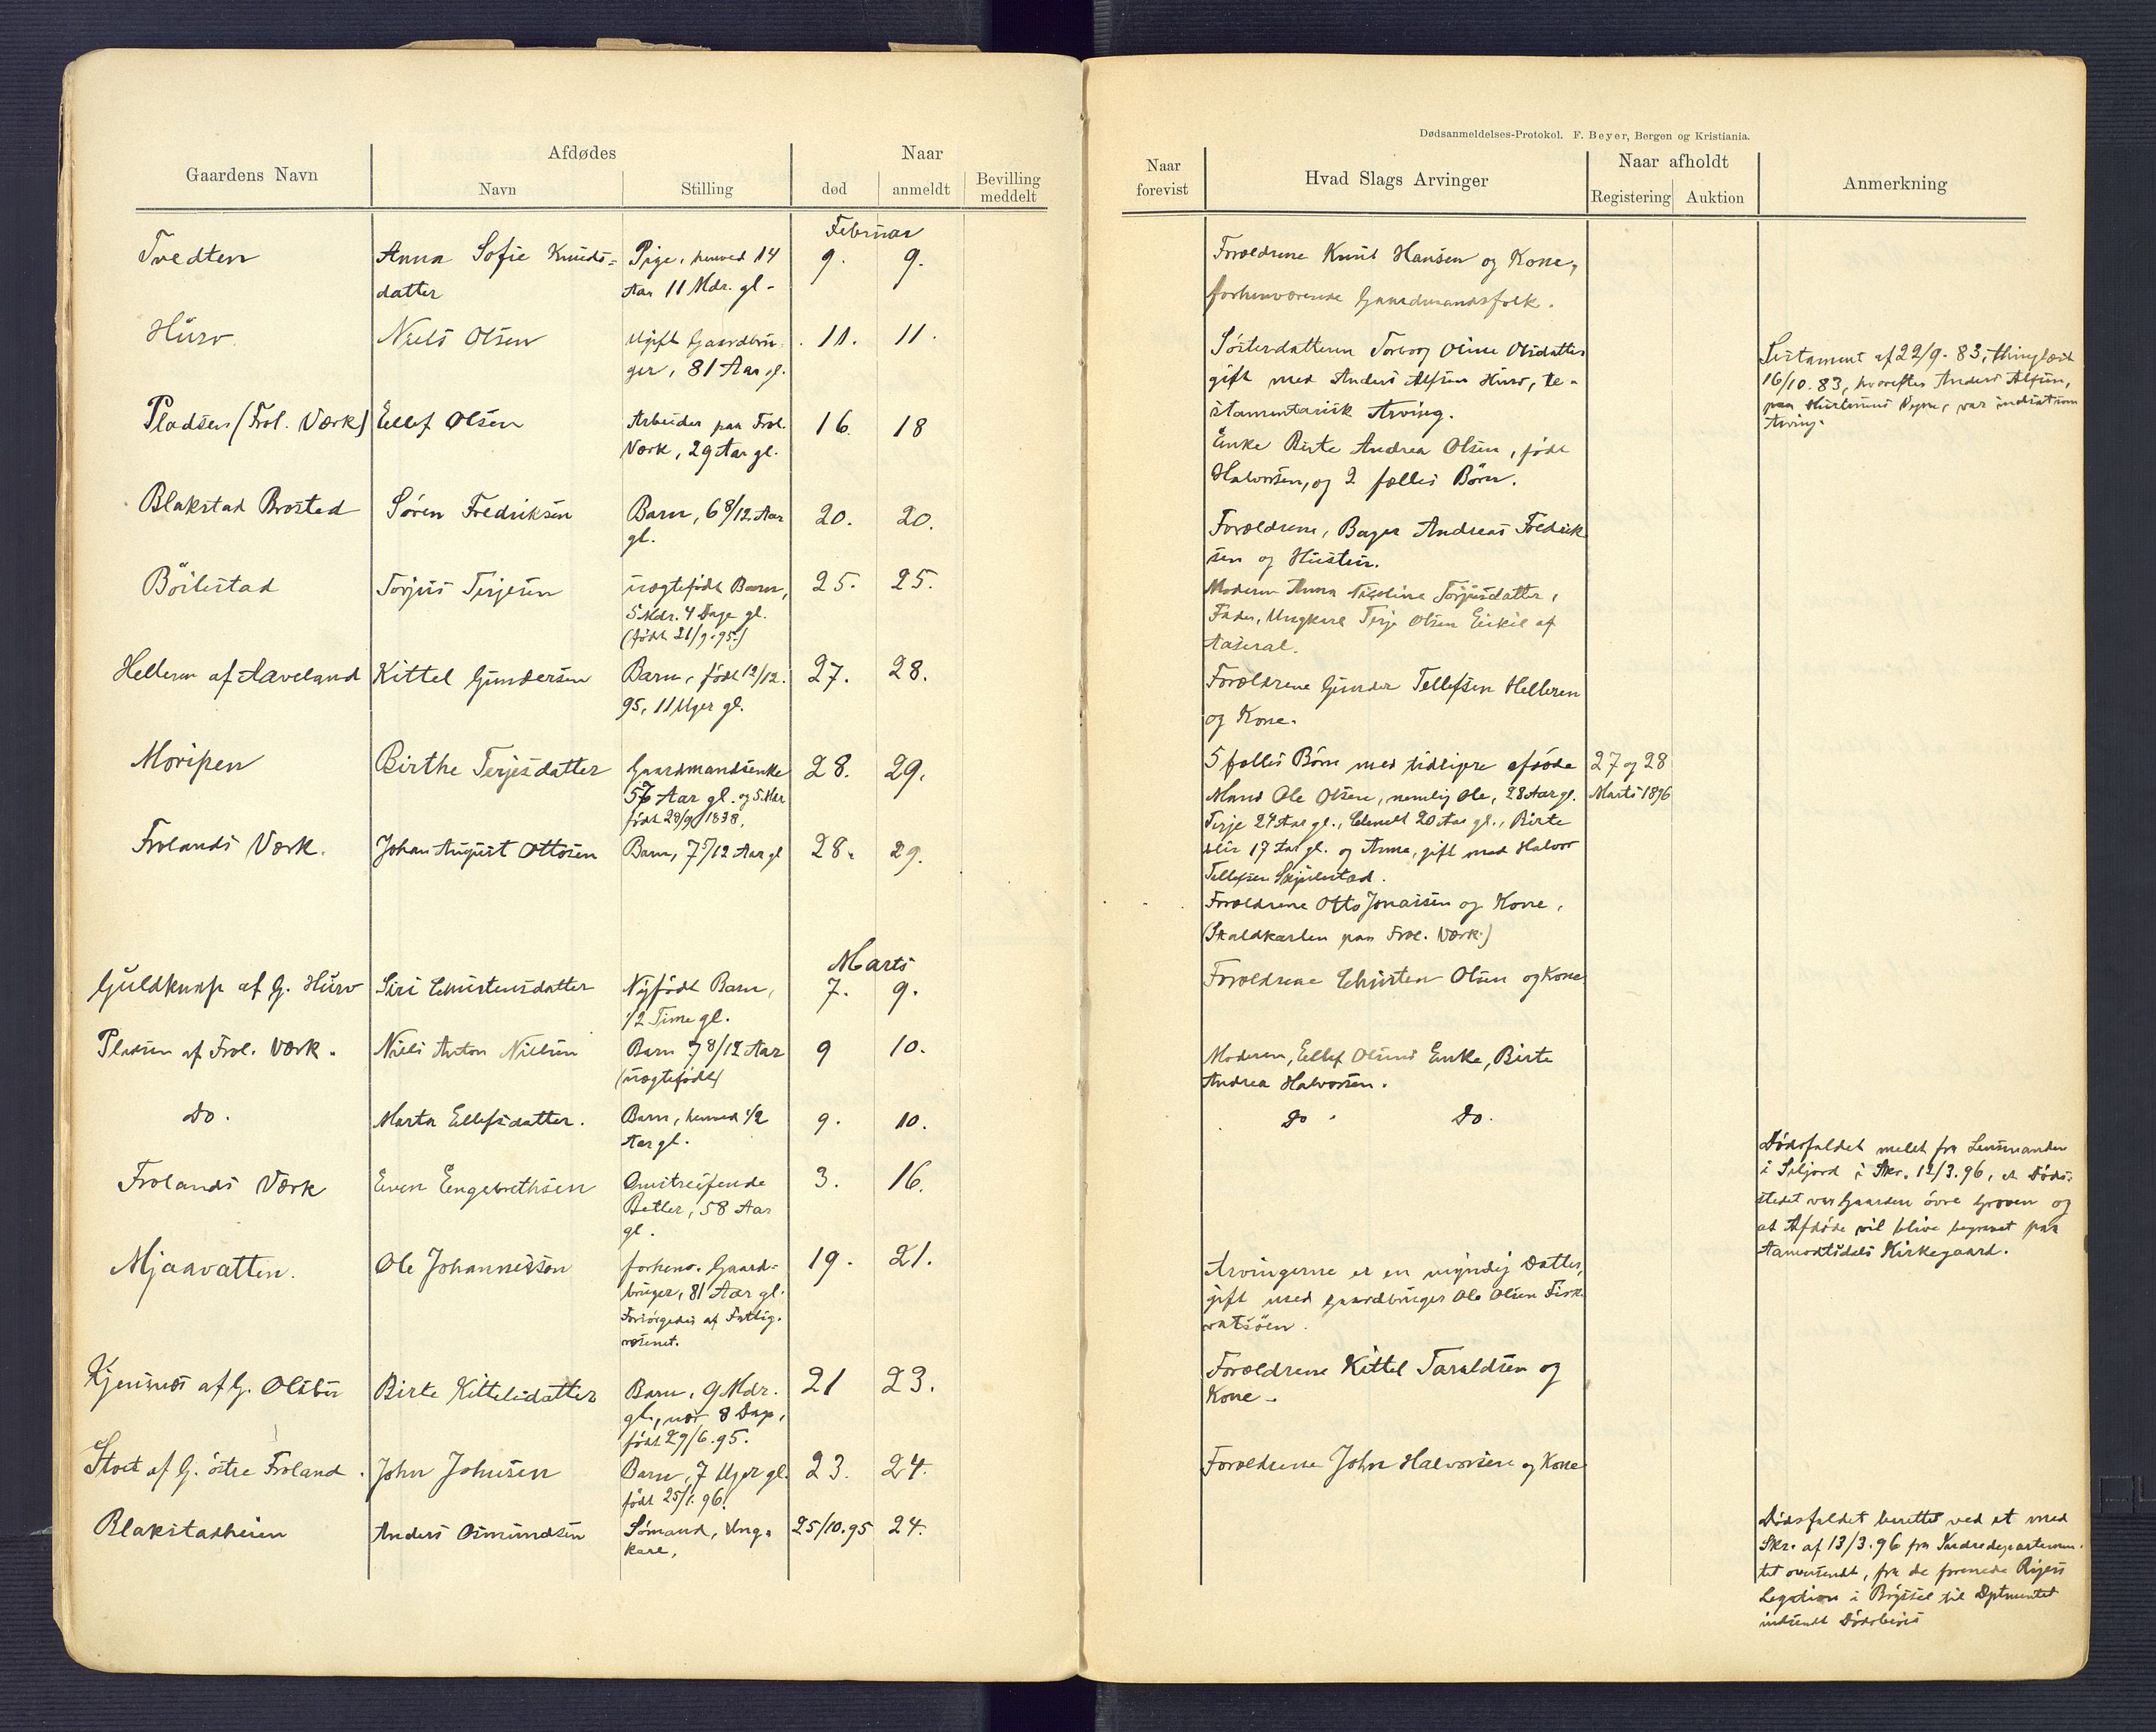 Gaardens Navn
Afdødes
Navn
Stilling
Naar
død
anmeldt
Bevilling
meddelt
Februar
Tvedten
Anna Sofie Knuds-
datter
Pige, henved 14
Aar 11 Mdr. gl.
9.
9.
Hurv
Niels Olsen
Ugift Gaardbru-
ger, 81 Aar gl.
11.
11.
Pladsen (Frol. Værk)
Ellef Olsen
Arbeider paa Frol.
Værk, 29 Aar gl.
16.
18
Blakstad Brosted
Søren Fredriksen
Barn, 6 8/12 Aar
gl.
20.
20.
Böilestad
Torjus Terjesen
uægtefødt Barn,
5 Mdr. 4 Dage gl.
(født 21/9.95.)
25.
25.
Helleren af Aaveland
Kittel Gundersen
Barn, født 12/12.
95, 11 Uger gl.
27.
28.
Moripen
Birthe Terjesdatter
Gaardmandsenke
57 Aar gl. og 5 Mdr
født 28/9 1838.
28.
29.
Frolands Værk.
Johan August Ottosen
Barn, 7 5/12 Aar gl
28.
29.
Marts
Guldknap af G. Hurv
Siri Christensdatter
Nyfødt Barn,
1/2 Time gl.
7.
9.
Pladsen af Frol. Værk.
Niels Anton Nielsen
Barn 7 8/12 Aar
(uægtefødt)
9
10.
Do.
Marta Ellefsdatter.
Barn, henved 1/2
Aar gl.
9.
10.
Frolands Værk
Even Engebrethsen
Omstreifende
Betler, 58 Aar
gl.
3.
16.
Mjaavatten.
Ole Johannesson
forhenv. Gaard-
bruger, 81 Aar gl.
Forsørgedes af Fattig-
væsenet.
19.
21.
af G. Olsbu
Birte Kittelsdatter
Barn, 9 Mdr.
gl., nær 8 Dage,
født 29/6.95.
21
23.
af G. östre Froland.
John Johnsen
Barn, 7 Uger gl.
født 25/1.96.
23.
24.
Blakstadheien
Anders Osmundsen
Sømand, Ung-
karl,
25/10.95
24.
Dødsanmeldelses-Protokol. F. Beyer, Bergen og Kristiania.
Naar
forevist
Hvad Slags Arvinger
Naar afholdt
Registering
Auktion
Anmerkning
Forældrene Knut Hansen og Kone,
forhenværende Gaardmandsfolk.
Søsterdatteren Torborg Oline Olsdatter
gift med Anders Alfsen Hurv, te-
stamentarisk Arving.
Testament af 22/9.83, thinglæst
16/10.83, hvorefter Anders Alfsen,
paa Hustruens Vegne, var indsat som
Arving.
Enke Birte Andrea Olsen, født
Halvorsen, og 2 fælles Børn.
Forældrene, Bager Andreas Fredrik
sen og Hustru.
Moderen Anna Nicoline Torjusdatter,
Fader, Ungkarl Terje Olsen Eikil af
Aaseral.
Forældrene Gunder Tellefsen Helleren
og Kone.
5 fælles Børn med tidligere afdøde
Mand Ole Olsen, nemlig Ole, 28 Aar gl.
Terje 24 Aar gl., 20 Aar gl., Birte
17 Aar gl. og Anna, gift med Halvor
Tellefsen
27 og 28
Marts 1896
Forældrene Otto Jonassen og Kone,
(Skaldkarlen paa Frol. Værk.)
Forældrene Christen Olsen og Kone
Moderen, Ellef Olsens Enke, Birte
Andrea Halvorsen.
Do
Do.
Dødsfaldet meldt fra Lensmanden
i Seljord i Skr. 12/3.96, at Døds-
stedet var Gaarden øvre Groven og
at Afdøde vil blive begravet paa
Aamodtsdals Kirkegaard.
Arvingerne er en myndig Datter,
gift med Gaardbruger Ole Olsen Fisk
vatsöen.
Forældrene Kittel Taraldsen og
Kone.
Forældrene John Halvorsen og Kone
Dødsfaldet berettet ved et med
Skr. af 13/3.96 fra Indredepartemen-
tet oversendt, fra de forenede Rigers
Legation i Brüssel til Dptmentet
indsendt Dødsbevis